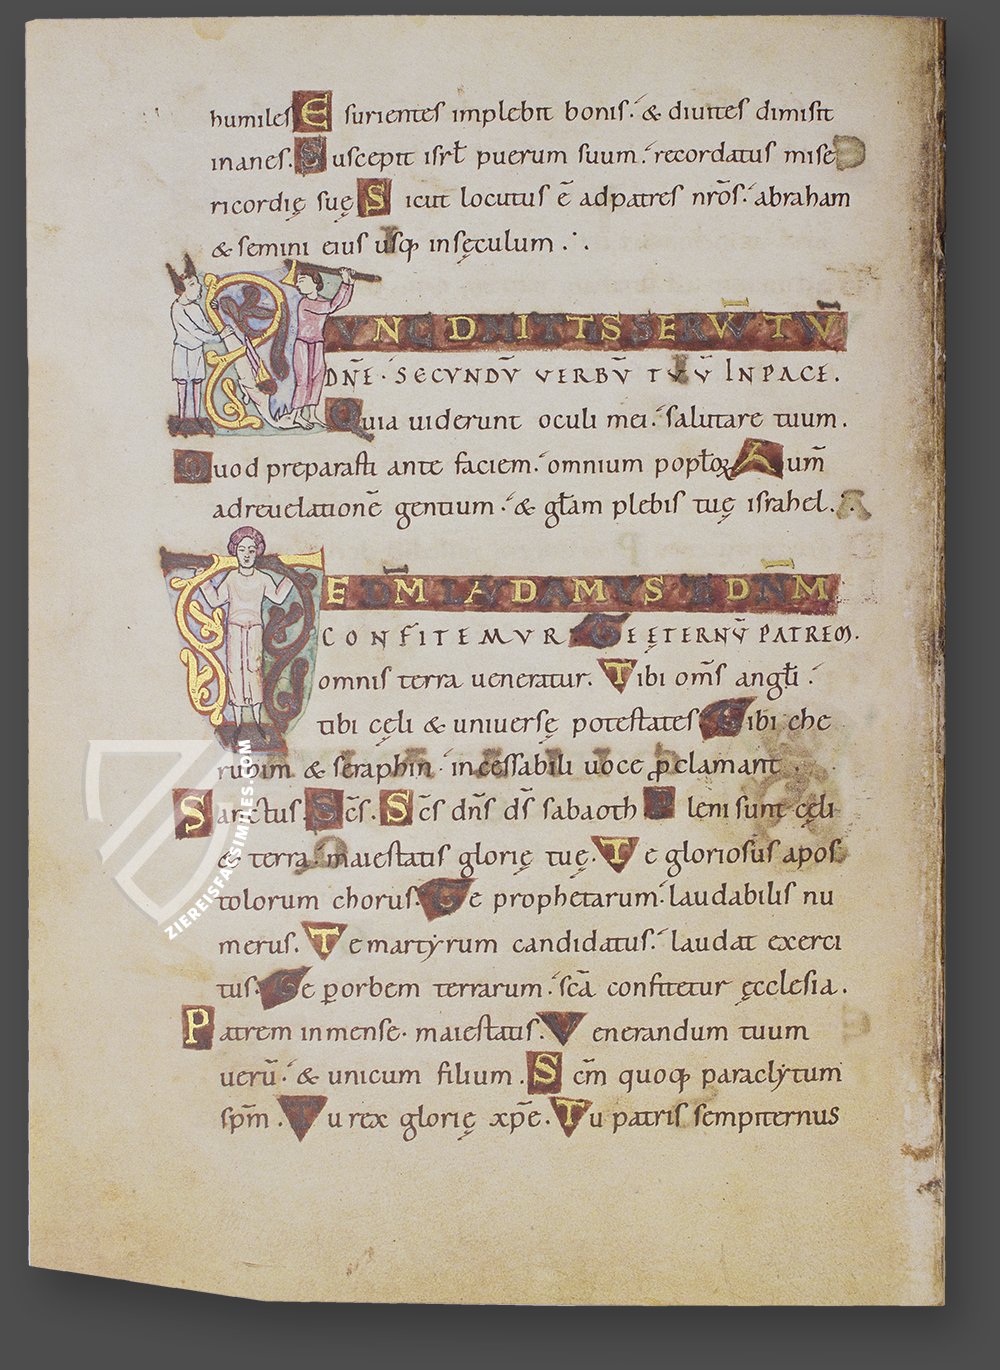 humiles Esurientes implebit bonis. & diuites dimisit
inanes. Suscepit isrł puerum suum. recordatus mise
ricordię suę Sicut locutus ē adpatres nrōs. abraham
& semini eius usq; insęculum.
NUNC DIMITTIS SERVV̄ TVV̄
DNĒ. SECVNDV̄ VERBV̄ TVV̄ IN PACE.
Quia uiderunt oculi mei. salutare tuum.
Quod preparasti ante faciem. omnium popłoꝝ Lum̄
adreuelationē gentium. & głam plebis tuę israhel.
TE DM̄ LAUDAMUS TE DN̄M
CONFITEMVR TE ĘTERNV̄ PATREM.
omnis terra ueneratur. Tibi om̄s angłi.
tibi cęli & uniuersę potestates. Tibi che
rubim & seraphin. incessabili uoce ꝓclamant.
Sanctus. Sc̄s. Sc̄s dn̄s ds̄ sabaoth Pleni sunt cęli
& terra. maiestatis glorię tuę. Te gloriosus apos
tolorum chorus. Te prophetarum. laudabilis nu
merus. Te martyrum candidatus. laudat exerci
tus. Te ꝑorbem terrarum. scā confitetur ęcclesia.
Patrem inmense. maiestatis. Venerandum tuum
uerū. & unicum filium. Scm̄ quoq; paraclytum
spm̄. Tu rex glorię xpē. Tu patris sempiternus
ZIEREISFACSIMILES.COM